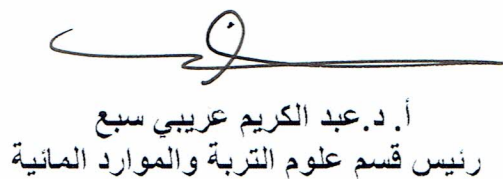 أ. د.عبد الكريم عريبي سبع
رئيس قسم علوم التربة والموارد المائية